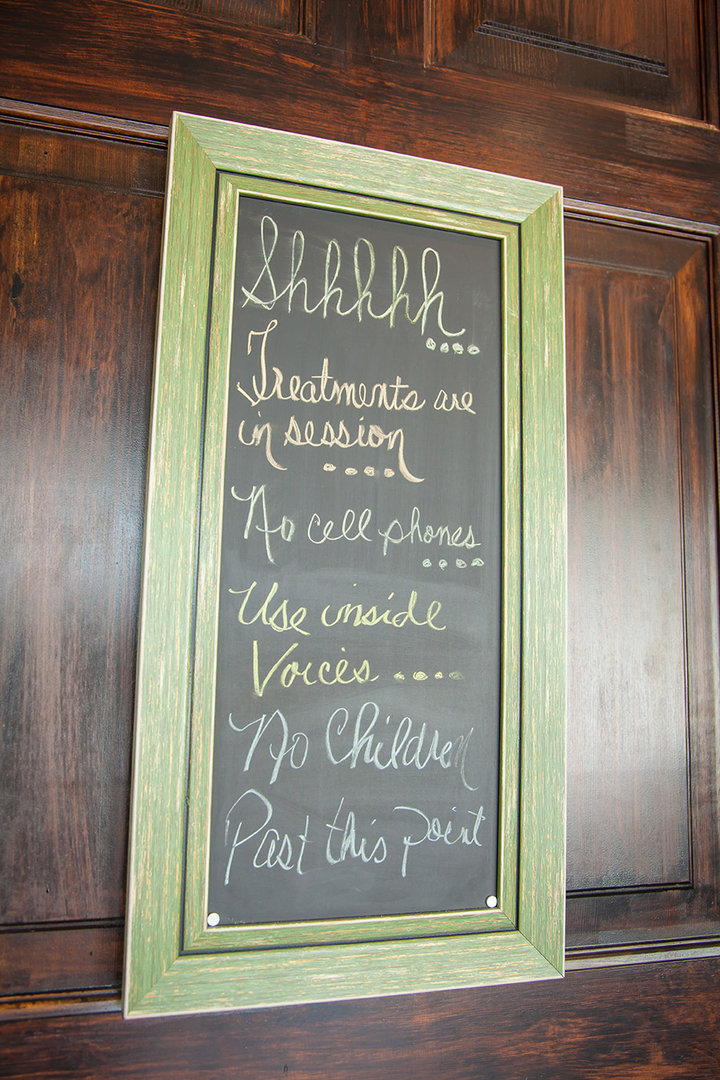 Shhhhh
....
Treatments are
in session
....
No cell phones
....
Use inside
Voices ....
No Children
Past this point